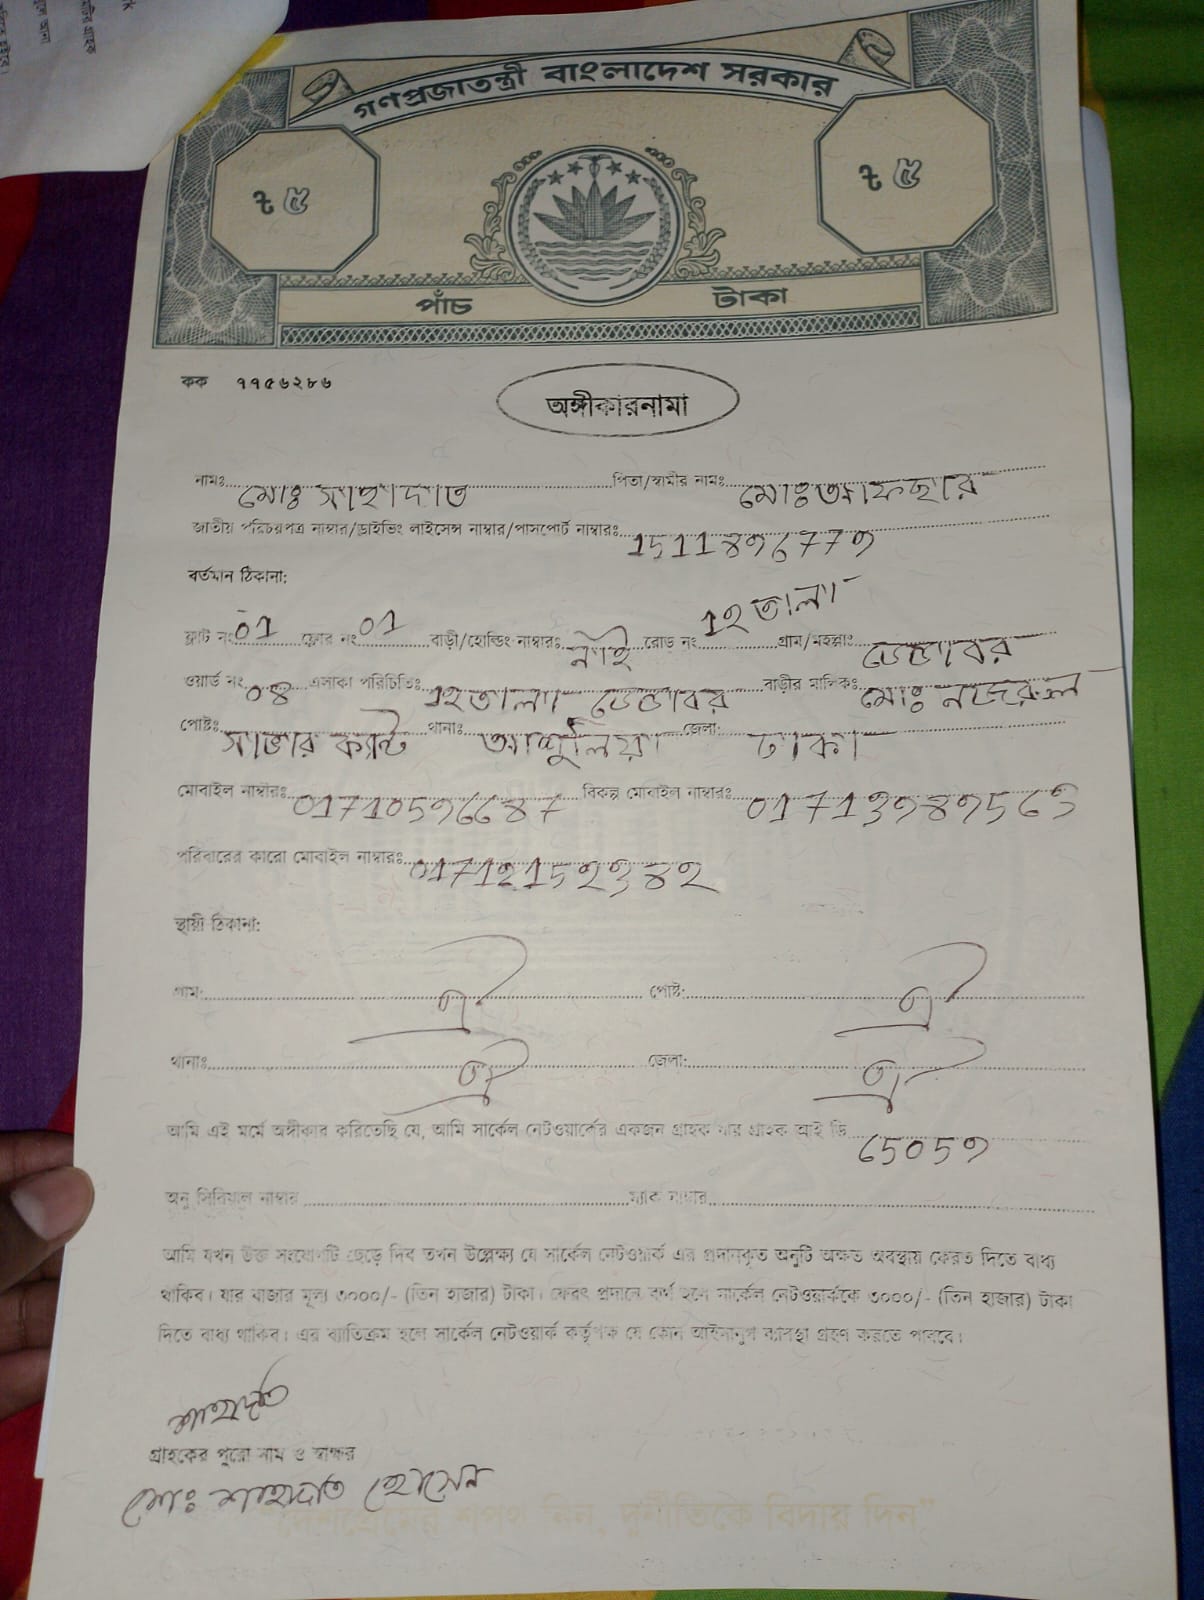 গণপ্রজাতন্ত্রী বাংলাদেশ সরকার
৳ ৫ ৳ ৫
পাঁচ টাকা
কক ৭৭৫৬২৮৬
অঙ্গীকারনামা
নামঃ মোঃ সাহাদাত পিতা/স্বামীর নামঃ মোঃ আফছার
জাতীয় পরিচয়পত্র নাম্বার/ড্রাইভিং লাইসেন্স নাম্বার/পাসপোর্ট নাম্বারঃ
বর্তমান ঠিকানা:
ফ্লাট নং 01 ফ্লোর নং 01 বাড়ী/হোল্ডিং নাম্বারঃ নাই রোড নং 12 তালা গ্রাম/মহল্লাঃ ডেন্ডাবর
ওয়ার্ড নং 04 এলাকা পরিচিতিঃ 12 তালা ডেন্ডাবর বাড়ীর মালিকঃ মোঃ নজরুল
পোষ্টঃ সাভার ক্যান্ট থানাঃ আশুলিয়া জেলা: ঢাকা
মোবাইল নাম্বারঃ বিকল্প মোবাইল নাম্বারঃ
পরিবারের কারো মোবাইল নাম্বারঃ
স্থায়ী ঠিকানা:
গ্রাম: ঐ পোষ্ট: ঐ
থানাঃ ঐ জেলা: ঐ
আমি এই মর্মে অঙ্গীকার করিতেছি যে, আমি সার্কেল নেটওয়ার্কের একজন গ্রাহক যার গ্রাহক আই ডি
অনু সিরিয়াল নাম্বার ম্যাক নাম্বার
আমি যখন উক্ত সংযোগটি ছেড়ে দিব তখন উল্লেক্ষ্য যে সার্কেল নেটওয়ার্ক এর প্রদানকৃত অনুটি অক্ষত অবস্থায় ফেরত দিতে বাধ্য
থাকিব। যার বাজার মূল্য ৩০০০/- (তিন হাজার) টাকা। ফেরৎ প্রদানে ব্যর্থ হলে সার্কেল নেটওয়ার্ককে ৩০০০/- (তিন হাজার) টাকা
দিতে বাধ্য থাকিব। এর ব্যাতিক্রম হলে সার্কেল নেটওয়ার্ক কর্তৃপক্ষ যে কোন আইনানুগ ব্যবস্থা গ্রহণ করতে পারবে।
শাহাদাত
গ্রাহকের পুরো নাম ও স্বাক্ষর
মোঃ শাহাদাত হোসেন
"দেশপ্রেমের শপথ নিন, দুর্নীতিকে বিদায় দিন"